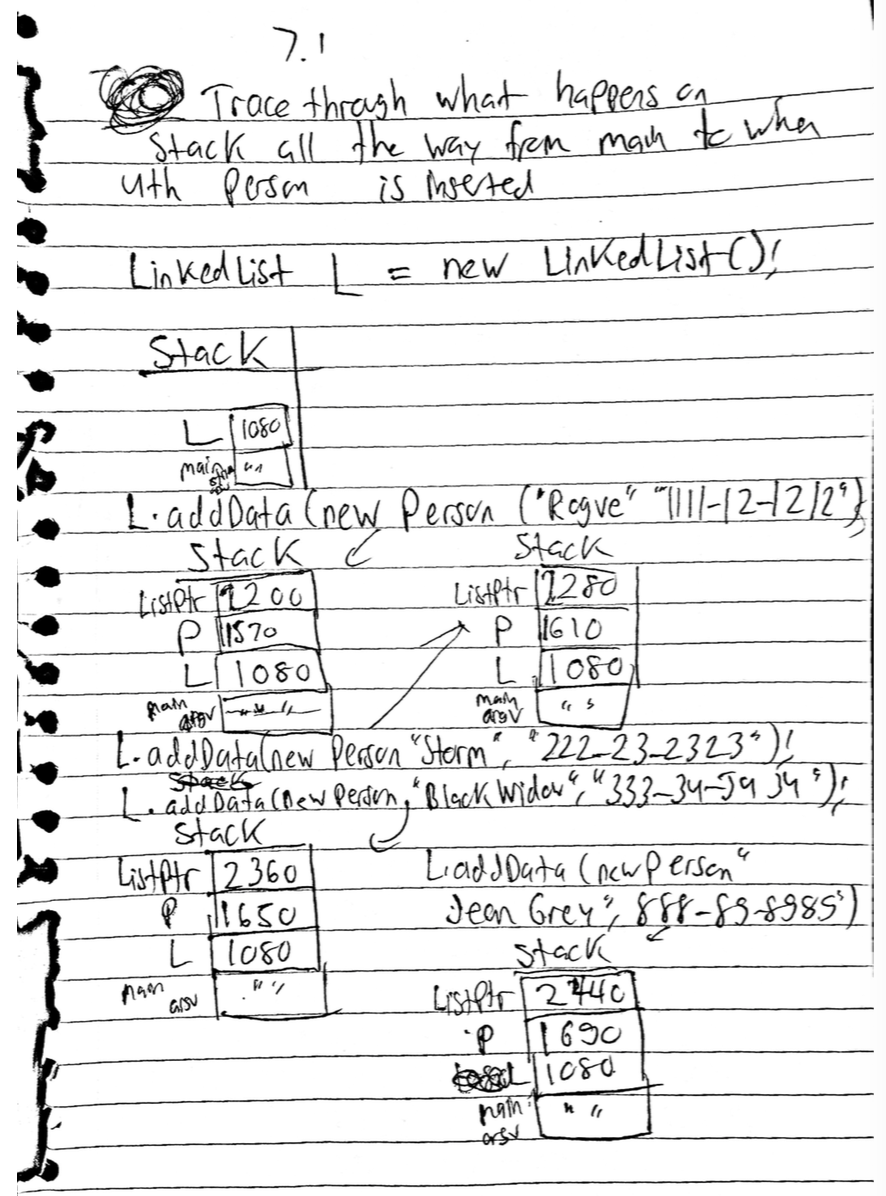 7.1
Trace through what happens on
Stack all the way from main to when
4th Person is inserted
LinkedList L = new LinkedList();
Stack
L 1080
main " "
L.addData(new Person ("Rogue" "1111-12-1212")
Stack
ListPtr 2200
P 1570
L 1080
main argv " "
Stack
ListPtr 2280
P 1610
L 1080
main argv " "
L.addData(new Person "Storm", "222-23-2323");
L.addData(new Person, "Black Widow", "333-34-3434");
Stack
ListPtr 2360
P 1650
L 1080
main argv " "
L.addData (new Person "
Jean Grey", 888-89-8989")
Stack
ListPtr 2440
P 1690
L 1080
main argv " "